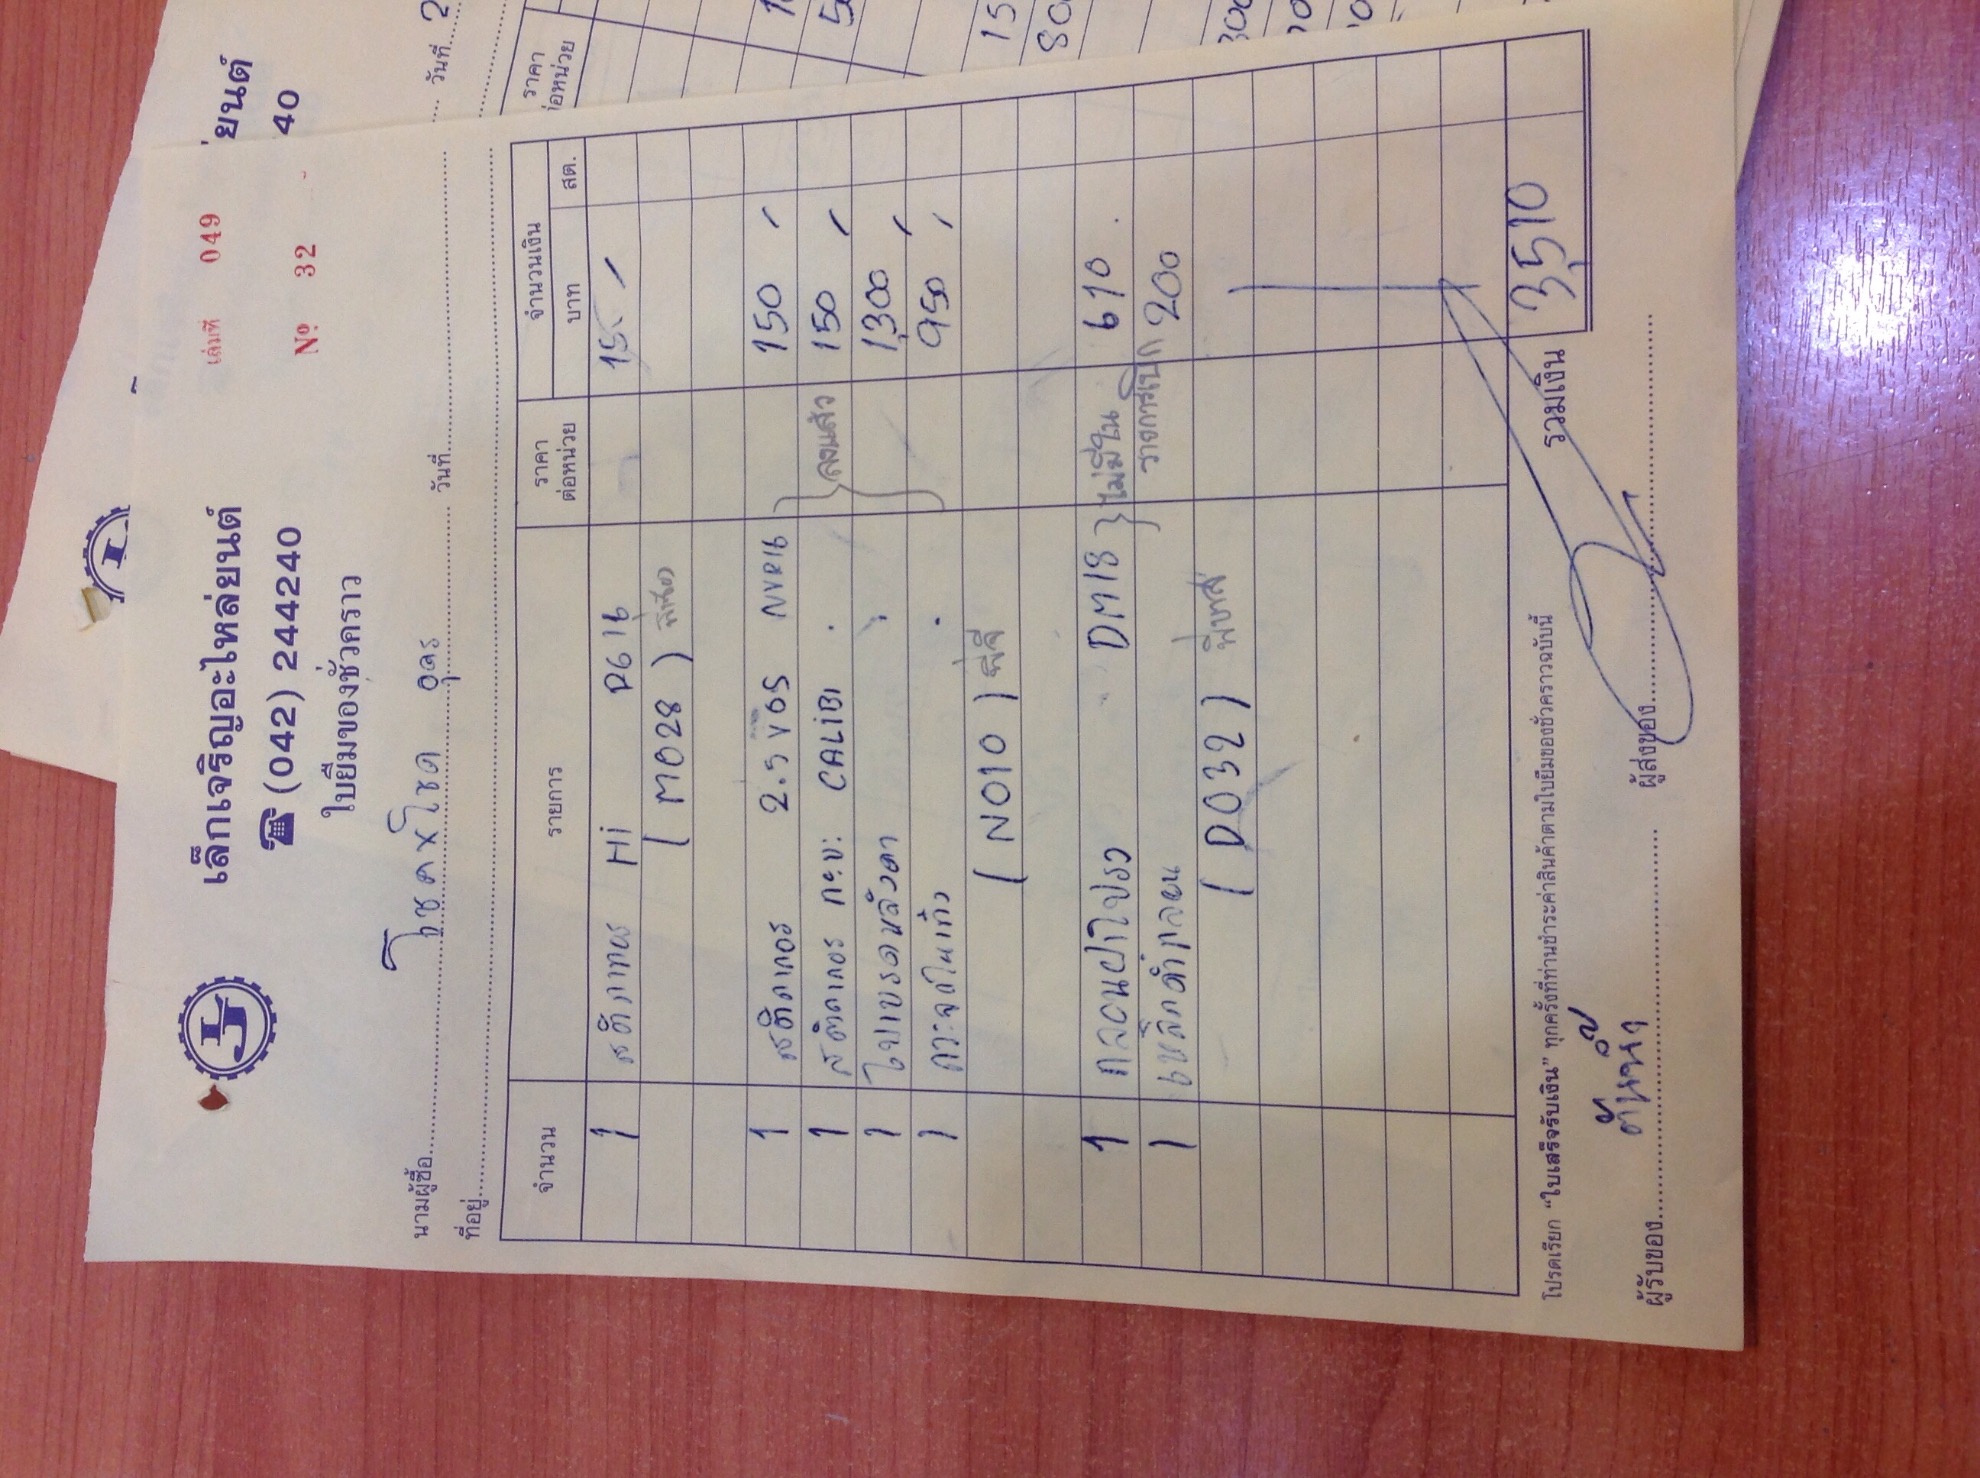 เล็กเจริญอะไหล่ยนต์
เล่มที่ 049
☎ (042) 244240
Nº 32
ใบยืมของชั่วคราว
นามผู้ซื้อ โชคคูณโชค อุดร วันที่
ที่อยู่
จำนวน รายการ ราคา ต่อหน่วย จำนวนเงิน
บาท สต.
1 สติกเกอร์ Hi D616
( M028 )
1 สติกเกอร์ 2.5 VGS NVR16 150
1 สติกเกอร์ กะบะ CALIBI 150
1 ใบเบรคหลัง 1,300
1 950
( N010 ) พี่จี
ลงแล้ว
1 กลอนฝาโปรง DM18 610
1 เหล็กค้ำกลอน 200
ไม่มีใน
รายการเบิก
( D032 )
รวมเงิน 3,510
โปรดเรียก “ใบเสร็จรับเงิน” ทุกครั้งที่ท่านชำระค่าสินค้าตามใบยืมของชั่วคราวฉบับนี้
ผู้รับของ ผู้ส่งของ
่ยนต์
40
วันที่ 2
ราคา